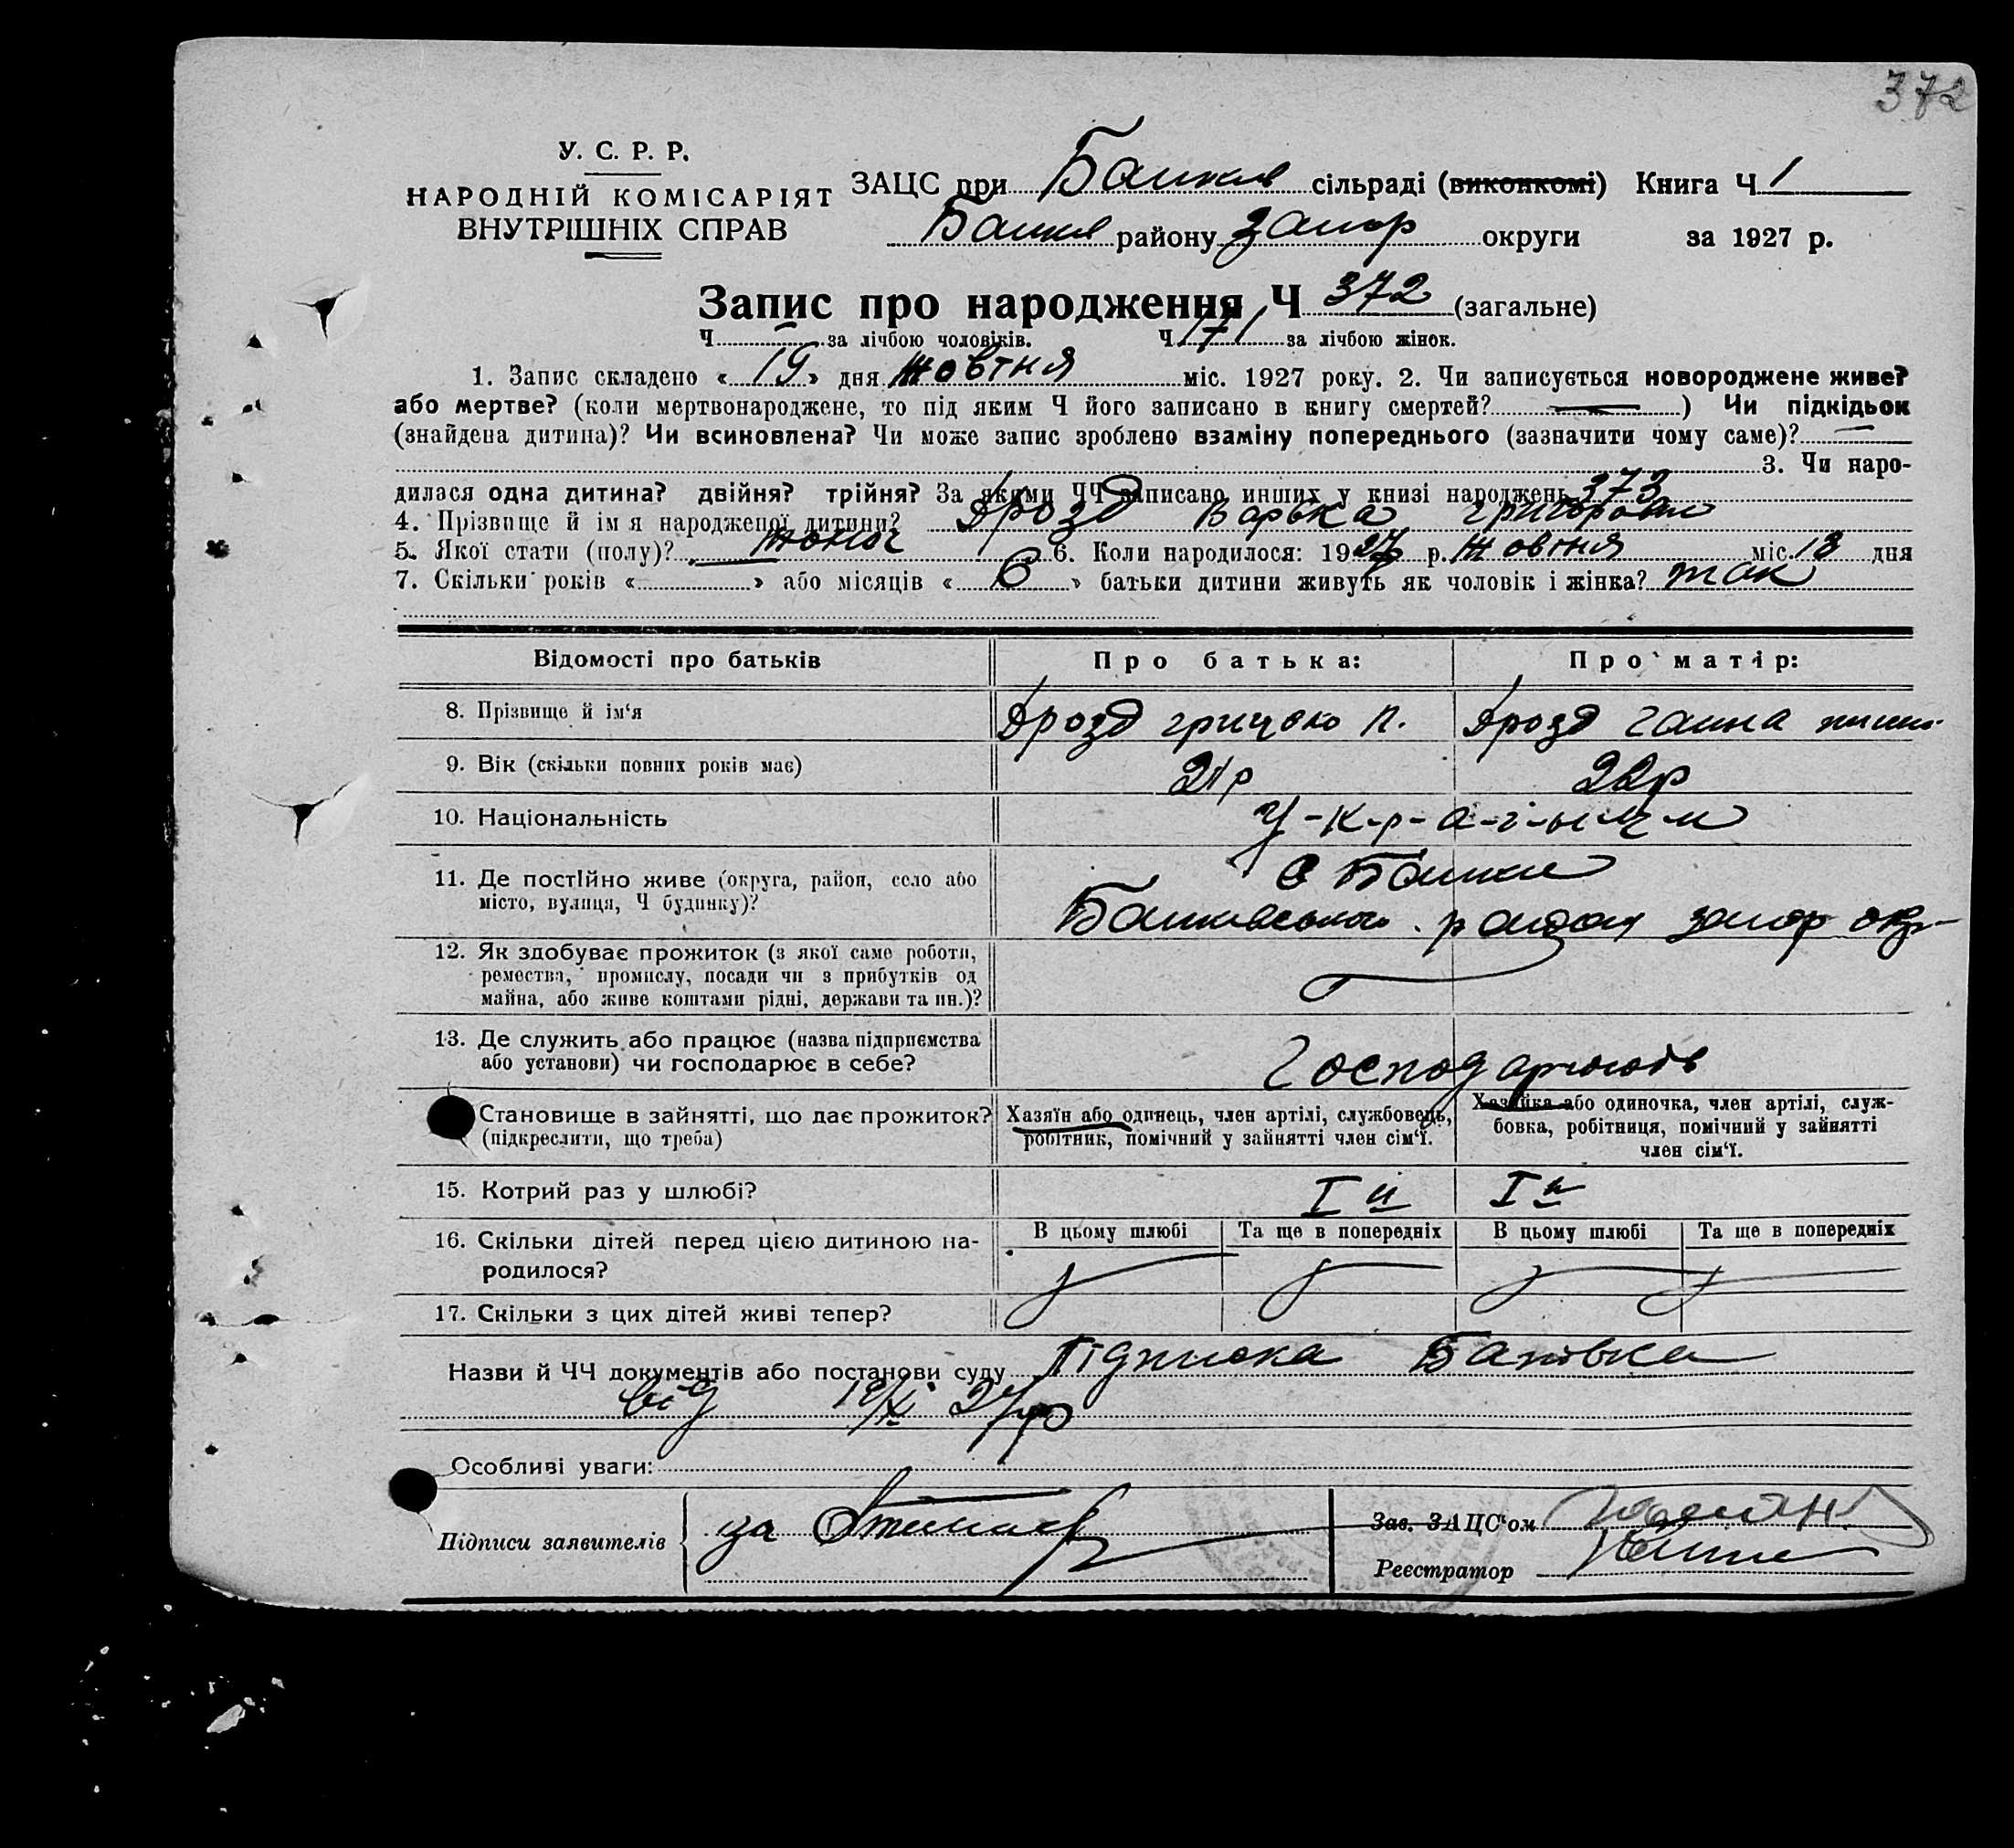 372
У. С. Р. Р.
НАРОДНІЙ КОМІСАРІЯТ
ВНУТРІШНІХ СПРАВ
ЗАЦС при сільраді (виконкомі) Книга Ч 1
району Запор округи за 1927 р.
Запис про народження Ч 372 (загальне)
Ч за лічбою чоловіків. Ч 171 за лічбою жінок.
1. Запис складено « 19 » дня жовтня міс. 1927 року. 2. Чи записується новороджене живе?
або мертве? (коли мертвонароджене, то під яким Ч його записано в книгу смертей? ) Чи підкідьок
(знайдена дитина)? Чи всиновлена? Чи може запис зроблено взаміну попереднього (зазначити чому саме)?
3. Чи наро-
дилася одна дитина? двійня? трійня? За якими ЧЧ записано инших у книзі народжень 373
4. Прізвище й ім я народженої дитини? Дрозд Варька
5. Якої стати (полу)? жоноч 6. Коли народилося: 1927 р. Жовтня міс. 18 дня
7. Скільки років « » або місяців « 6 » батьки дитини живуть як чоловік і жінка? так
Відомості про батьків Про батька: Про матір:
8. Прізвище й ім‘я Дрозд грицько П. Дрозд Ганна
9. Вік (скільки повних років має) 21р 22р
10. Національність У-к-р-а-ї-н-ц-и
11. Де постійно живе (округа, район, село або
місто, вулиця, Ч будинку)? району запор окр
12. Як здобуває прожиток (з якої саме роботи,
ремества, промислу, посади чи з прибутків од
майна, або живе коштами рідні, держави та ин.)?
13. Де служить або працює (назва підприємства
або установи) чи господарює в себе? Господарюють
Становище в зайнятті, що дає прожиток?
(підкреслити, що треба)
Хазяїн або одинець, член артілі, службовець,
робітник, помічний у зайнятті член сім‘ї.
Хазяйка або одиночка, член артілі, служ-
бовка, робітниця, помічний у зайнятті
член сім‘ї.
15. Котрий раз у шлюбі? І й І а
16. Скільки дітей перед цією дитиною на-
родилося?
В цьому шлюбі Та ще в попередніх В цьому шлюбі Та ще в попередніх
17. Скільки з цих дітей живі тепер?
Назви й ЧЧ документів або постанови суду Підписка Батька
від 19/X 27 р
Особливі уваги:
Підписи заявителів за
Зав. ЗАЦС‘ом
Реєстратор